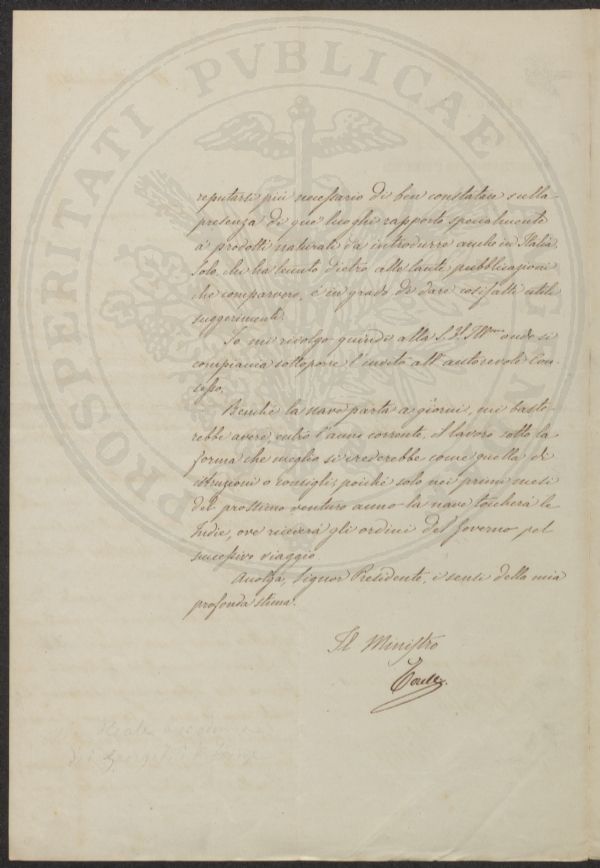 PROSPERITATI PVBLICAE
reputarsi più necessario di ben constatare sulla
presenza di que' luoghi rapporto specialmente
a' prodotti naturali da introdurre anche in Italia.
Solo chi ha tenuto dietro alle tante pubblicazioni
che comparvero, è in grado di dare cosifatti utili
suggerimenti.
Io mi rivolgo quindi alla S. V. Ill.ma onde si
compiaccia sottoporre l'invito all'autorevole Con-
cesso.
Benchè la nave parta a giorni, mi baste-
rebbe avere, entro l'anno corrente, il lavoro sotto la
forma che meglio si crederebbe come quella di
istruzioni o consigli; poichè solo nei primi mesi
del prossimo venturo anno la nave toccherà le
Indie, ove riceverà gli ordini del Governo pel
successivo viaggio.
Accolga, Signor Presidente, i sensi della mia
profonda stima.
Il Ministro
Torelli
Reale
dei Georgofili